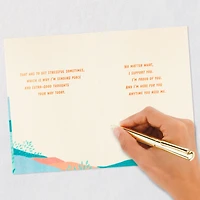 THAT HAS TO GET STRESSFUL SOMETIMES,
WHICH IS WHY I'M SENDING HUGS
AND EXTRA-GOOD THOUGHTS
YOUR WAY TODAY.
NO MATTER WHAT,
I SUPPORT YOU.
I'M PROUD OF YOU
AND I'M HERE FOR YOU
ANYTIME YOU NEED ME.